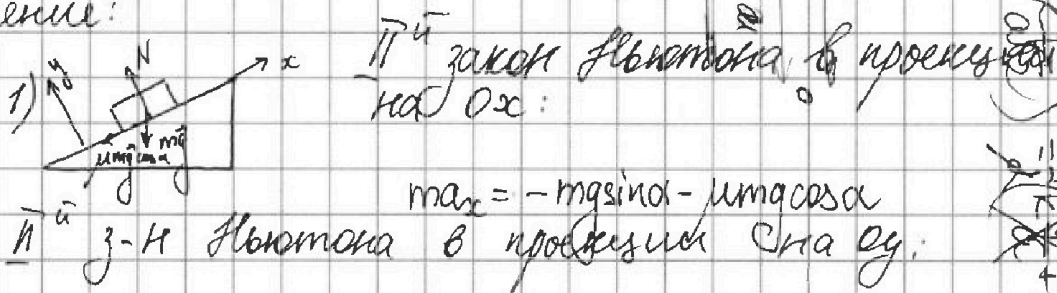 ение:
1)
y
N
x
mg
μmgcosα
IIй закон Ньютона в проекции
на Ox:
max = -mgsinα - μmgcosα
IIй з-н Ньютона в проекции на Oy: